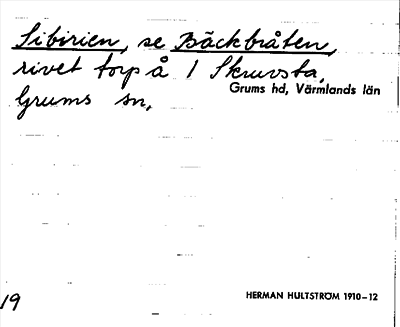 Sibirien, se Bäckbråten,
rivet torp å 1 Skruvsta,
Grums hd, Värmlands län
Grums sn,
HERMAN HULTSTRÖM 1910-12
19